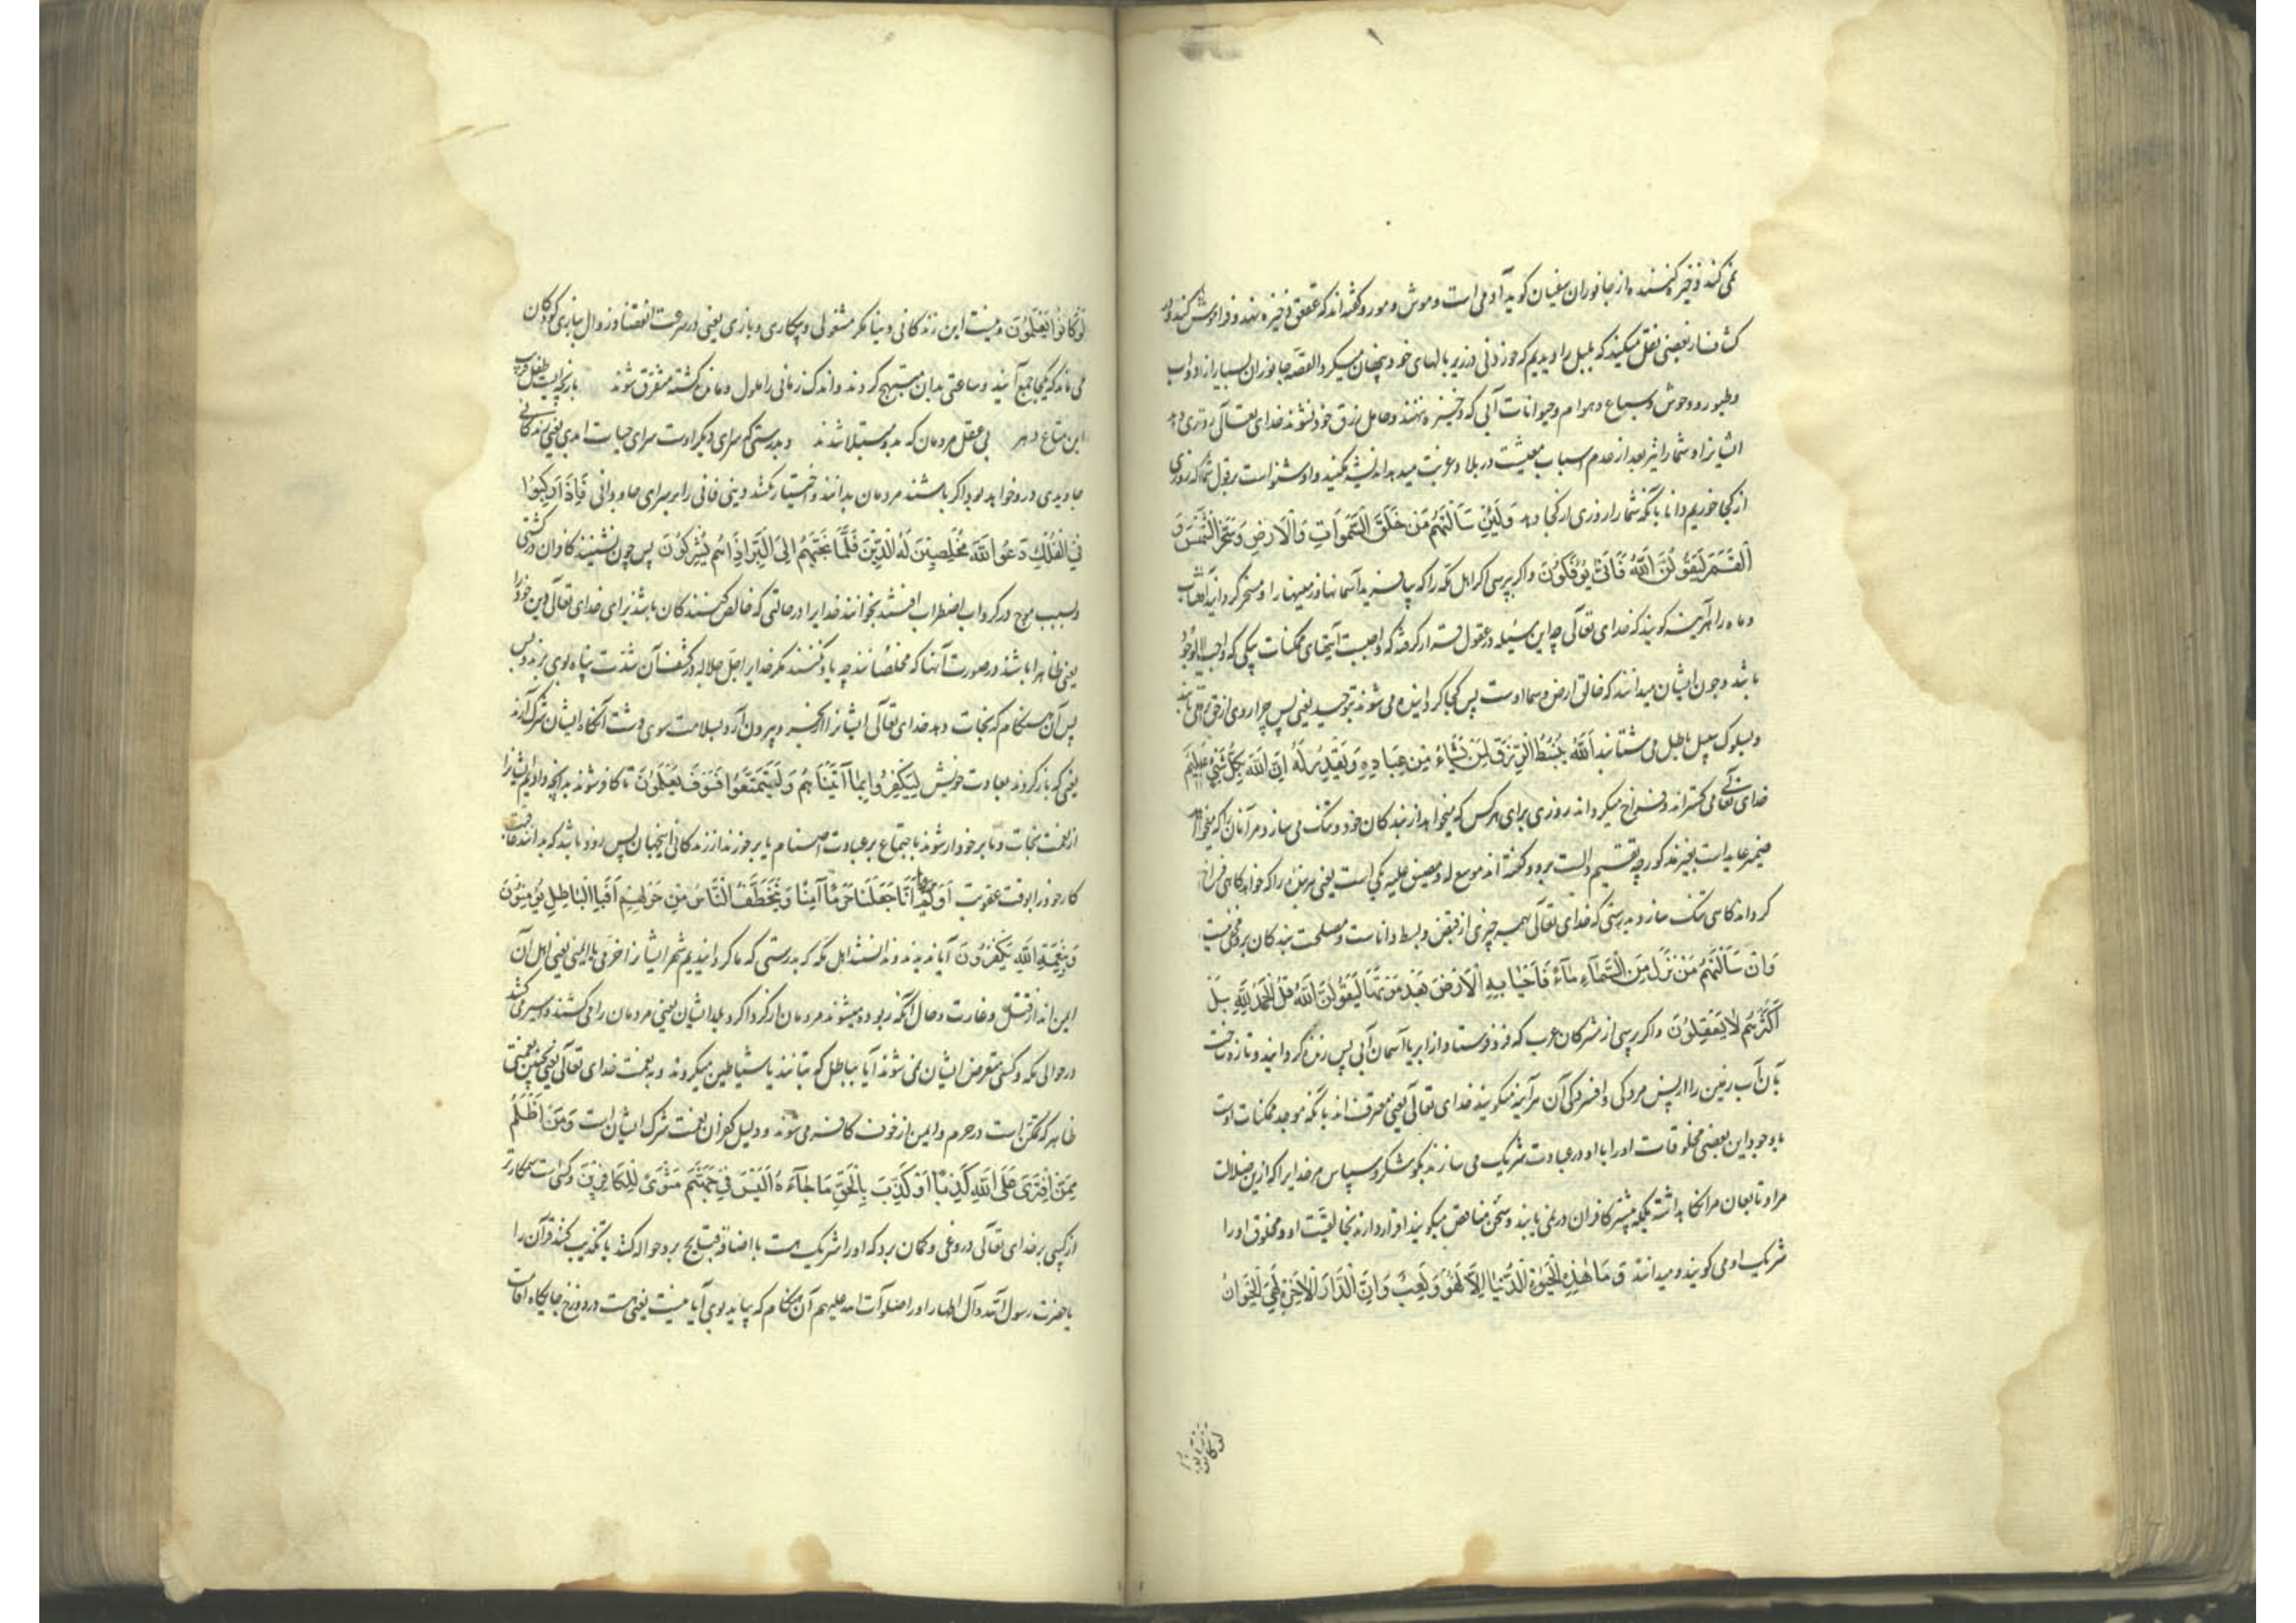 نمی‌کند ذخیره کننده از جانوران سفیان کوید آدمی است و موش و مور و کفته‌اند که عقعق ذخیره نهد و فراموش کند و در
کشاف از بعضی نقل میکند که بلبل را دیدیم که خوردنی در زیر بالهای خود پنهان میکرد القصه جانوران بسیار از دواب
و طیور و وحوش و سباع و هوام و حیوانات آبی که ذخیره ننهند و حامل رزق خود نشوند خدای تعالی روزی دهد
ایشانرا و شما را نیز بعد از عدم اسباب معیشت در بلاد غربت میدهد اندیشه مکنید و او شنواست بر قول شما که روزی
از کجا خوریم دانا بآنکه شما را روزی از کجا دهد وَلَئِنْ سَأَلْتَهُمْ مَنْ خَلَقَ السَّمَوَاتِ وَالْأَرْضَ وَسَخَّرَ الشَّمْسَ وَ
الْقَمَرَ لَيَقُولُنَّ اللَّهُ فَأَنَّى يُؤْفَكُونَ و اکر بپرسی از اهل مکه را که بیافرید آسمانها و زمینها را و مسخر کردانید آفتاب
و ماه را هر آینه کویند که خدای تعالی چه این مسئله در عقول قرار کرفته که واجبست انتهای ممکنات بیکی که واجب الوجود
باشد و چون ایشان میدانند که خالق ارض و سما اوست پس کجا کردانیده می‌شوند از توحید یعنی پس چرا روی از حق می‌تابند
و بسلوک سبیل باطل می شتابند اَللَّهُ يَبْسُطُ الرِّزْقَ لِمَنْ يَشَاءُ مِنْ عِبَادِهِ وَيَقْدِرُ لَهُ إِنَّ اللَّهَ بِكُلِّ شَيْءٍ عَلِيمٌ
خدای تعالی می کستراند و فراخ میکرداند روزی برای هر کس که میخواهد از بندکان خود و تنک می سازد مر آنان را که میخواهد
ضمیر عاید است بغیر مذکور چه تقسیم دالست برو و کفته‌اند موسع له و مضیق علیه یکی است یعنی هر بنده را که خواهد کاهی فراخ
کرداند کاهی تنک سازد بدرستی که خدای تعالی بهمه چیزی از قبض و بسط داناست و مصلحت بندکان برو مخفی نیست
وَلَئِنْ سَأَلْتَهُمْ مَنْ نَزَّلَ مِنَ السَّمَاءِ مَاءً فَأَحْيَا بِهِ الْأَرْضَ بَعْدَ مَوْتِهَا لَيَقُولُنَّ اللَّهُ قُلِ الْحَمْدُ لِلَّهِ بَلْ
أَكْثَرُهُمْ لَا يَعْقِلُونَ و اکر پرسی از مشرکان عرب که فرو فرستاد از ابر یا آسمان آبی پس زنده کردانید و تازه ساخت
بآن آب زمین را از پس مردکی و افسردکی آن هر آینه میکویند خدای تعالی یعنی معترف‌اند بآنکه موجد ممکنات اوست
با وجود این بعضی مخلوقات او را با او در عبادت شریک می سازند بکو شکر و سپاس مر خدایرا که ازین ضلالت
مرا و تابعان مرا نکاهداشته بلکه بیشتر کافران در نمی یابند و سخن متناقض میکویند اقرار دارند بخالقیت او و مخلوق او را
شریک او می کویند و میدانند وَمَا هَذِهِ الْحَيَوةُ الدُّنْيَا إِلَّا لَهْوٌ وَلَعِبٌ وَإِنَّ الدَّارَ الْآخِرَةَ لَهِيَ الْحَيَوَانُ
لو کانوا
لَوْ كَانُوا يَعْلَمُونَ و نیست این زندکانی دنیا مکر مشغولی و بیکاری و بازی یعنی در سرعت انقضا و زوال ببازی کودکان
می ماند که یکجا جمع آیند و ساعتی بدان مبتهج کردند و اندک زمانی را ملول و مانده کشته متفرق شوند بازیچه ایست طفل فریب
این متاع دهر بی عقل مردمان که بدو مبتلا شدند و بدرستی که سرای دیکر اوست سرای حیات ابدی یعنی زندکانی
جاویدی درو خواهد بود اکر باشند مردمان بدانند و اختیار نکنند دنیی فانی را بر سرای جاودانی فَإِذَا رَكِبُوا
فِي الْفُلْكِ دَعَوُا اللَّهَ مُخْلِصِينَ لَهُ الدِّينَ فَلَمَّا نَجَّيهُمْ إِلَى الْبَرِّ إِذَا هُمْ يُشْرِكُونَ پس چون نشینند کافران در کشتی
و بسبب موج در کرداب اضطراب افتند بخوانند خدایرا در حالتی که خالص کنندکان باشند برای خدای تعالی دین خود را
یعنی ظاهرا باشند در صورت آنها که مخلصانند چه یاد نکنند مکر خدایرا جل جلاله و در کشف آن شدت پناه بوی برند و بس
پس آن هنکام که نجات دهد خدای تعالی ایشانرا از بحر و بیرون آرد بسلامت سوی دشت آنکاه ایشان شرک آرند
یعنی که باز کردند بعادت خویش لِيَكْفُرُوا بِمَا آتَيْنَاهُمْ وَلِيَتَمَتَّعُوا فَسَوْفَ يَعْلَمُونَ تا کافر شوند بدانچه دادیم ایشانرا
از نعمت نجات و تا برخوردار شوند باجتماع بر عبادت اصنام یا برخورند از زندکانی اینجهان پس زود باشد که بدانند عاقبت
کار خود را بوقت عقوبت أَوَلَمْ يَرَوْا أَنَّا جَعَلْنَا حَرَمًا آمِنًا وَيُتَخَطَّفُ النَّاسُ مِنْ حَوْلِهِمْ أَفَبِالْبَاطِلِ يُؤْمِنُونَ
وَبِنِعْمَةِ اللَّهِ يَكْفُرُونَ آیا ندیدند و ندانستند اهل مکه که بدرستی که ما کردانیدیم شهر ایشانرا حرمی با ایمنی یعنی اهل آن
ایمن‌اند از قتل و غارت و حال آنکه ربوده میشوند مردمان از کرداکرد بلد ایشان یعنی مردمان را می کشند و اسیر می کنند
در حوالی مکه و کسی متعرض ایشان نمی شوند آیا بباطل که بتانند یا شیاطین میکروند و به نعمت خدای تعالی یعنی چنین نعمتی
ظاهر که تمکن است در حرم و ایمن از خوف کافر می شوند و دلیل کفران نعمت شرک ایشان است وَمَنْ أَظْلَمُ
مِمَّنِ افْتَرَى عَلَى اللَّهِ كَذِبًا أَوْ كَذَّبَ بِالْحَقِّ لَمَّا جَاءَهُ أَلَيْسَ فِي جَهَنَّمَ مَثْوًى لِلْكَافِرِينَ و کیست ستمکارتر
از کسی بر خدای تعالی دروغی و کمان برد که او را شریک هست یا اضافه قبایح برو حواله کند یا تکذیب کند قرآن را
یا حضرت رسول الله و آل اطهار او را صلوات الله علیهم آن هنکام که بیاید بوی آیا نیست یعنی هست در دوزخ جایکاه اقامت